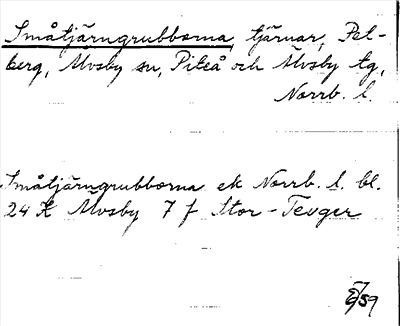 Småtjärngrubborna, tjärnar, Pål-
berg, Älvsby sn, Piteå och Älvsby tg,
Norrb. l.
Småtjärngrubborna ek Norrb. l. bl.
24 K Älvsby 7 f Stor-Tevger
59